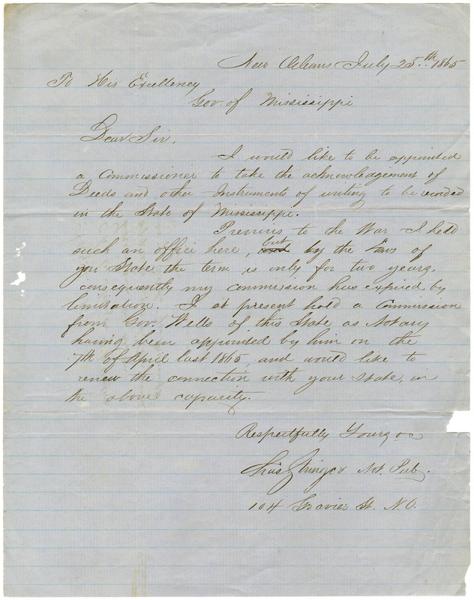 New Orleans July 25th 1865
To His Excellency
Gov. of Mississippi
Dear Sir,
I would like to be appointed
a Commissioner to take the acknowledgement of
Deeds and other Instruments of writing to be used
in the State of Mississippi.
Previous to the War I held
such an office here, but by the Laws of
your State the term is only for two years,
consequently my commission has expired by
limitation. I at present hold a Commission
from Gov. Wells of this State as Notary
having been appointed by him on the
7th of April last 1865 and would like to
renew the connection with your State, in
the above capacity.
Respectfully Yours
Not. Pub.
104 Gravier St. N.O.